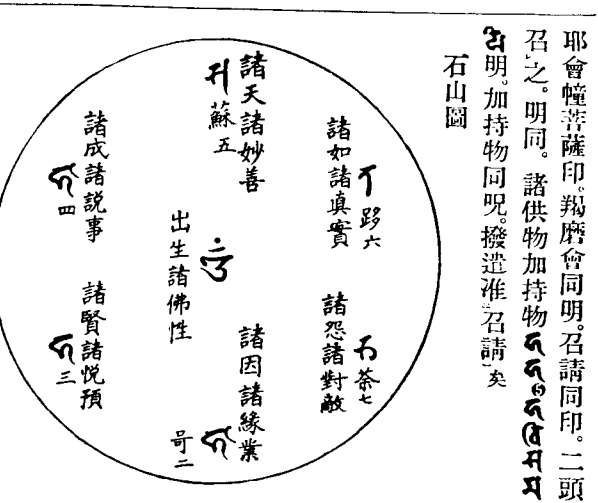 耶會幢菩薩印。羯磨會同明。召請同印。二頭
召之。明同。諸供物加持物
明。加持物同呪。撥遣准召請矣
石山圖
諸如諸真實
六
諸怨諸對敵
荼七
諸天諸妙善
蘇五
出生諸佛性
諸因諸緣業
哥二
諸成諸説事
四
諸賢諸悦預
三